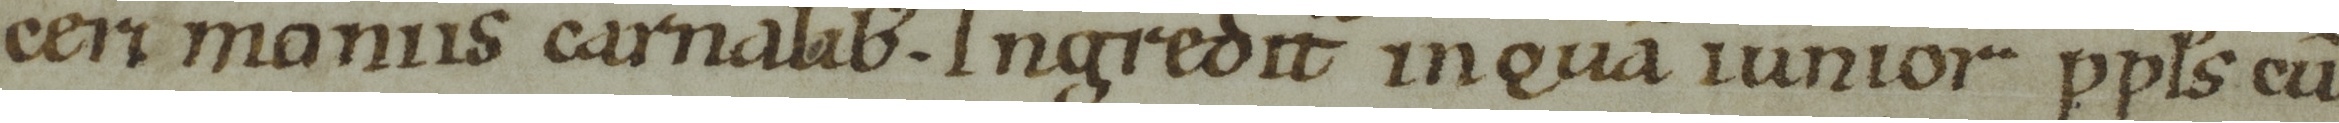 ceri moniis carnalib. Ingredit inquā iunior ppls cū